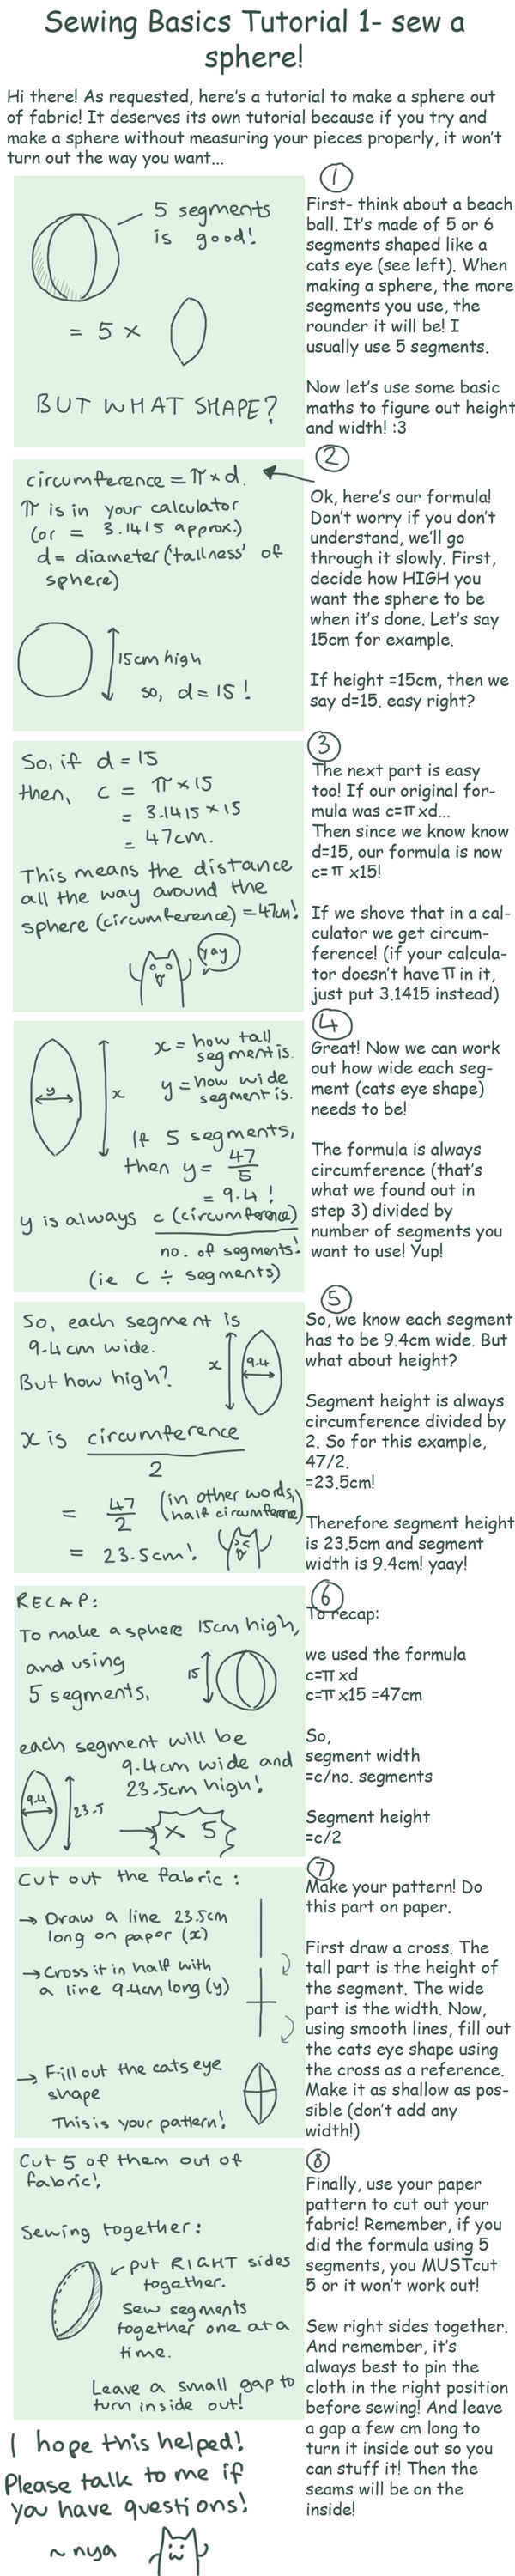 Sewing Basics Tutorial 1- sew a
sphere!
Hi there! As requested, here's a tutorial to make a sphere out
of fabric! It deserves its own tutorial because if you try and
make a sphere without measuring your pieces properly, it won't
turn out the way you want...
5 segments
is good!
= 5 x
BUT WHAT SHAPE?
1
First- think about a beach
ball. It's made of 5 or 6
segments shaped like a
cats eye (see left). When
making a sphere, the more
segments you use, the
rounder it will be! I
usually use 5 segments.
Now let's use some basic
maths to figure out height
and width! :3
circumference = π x d.
π is in your calculator
(or = 3.1415 approx.)
d = diameter ('tallness' of
sphere)
15cm high
so, d = 15!
2
Ok, here's our formula!
Don't worry if you don't
understand, we'll go
through it slowly. First,
decide how HIGH you
want the sphere to be
when it's done. Let's say
15cm for example.
If height =15cm, then we
say d=15. easy right?
So, if d = 15
then, c = π x 15
= 3.1415 x 15
= 47cm.
This means the distance
all the way around the
sphere (circumference) = 47cm!
yay
3
The next part is easy
too! If our original for-
mula was c=π xd...
Then since we know know
d=15, our formula is now
c= π x15!
If we shove that in a cal-
culator we get circum-
ference! (if your calcula-
tor doesn't have π in it,
just put 3.1415 instead)
y
x
x = how tall
segment is.
y = how wide
segment is.
If 5 segments,
then y = 47
5
= 9.4!
y is always c (circumference)
no. of segments!
(ie C ÷ segments)
4
Great! Now we can work
out how wide each seg-
ment (cats eye shape)
needs to be!
The formula is always
circumference (that's
what we found out in
step 3) divided by
number of segments you
want to use! Yup!
So, each segment is
9.4cm wide.
But how high?
x
9.4
x is circumference
2
= 47
2
(in other words,
half circumference)
= 23.5cm!
5
So, we know each segment
has to be 9.4cm wide. But
what about height?
Segment height is always
circumference divided by
2. So for this example,
47/2.
=23.5cm!
Therefore segment height
is 23.5cm and segment
width is 9.4cm! yaay!
RECAP:
To make a sphere 15cm high,
and using
5 segments,
15
each segment will be
9.4cm wide and
23.5cm high!
9.4
23.5
x 5
6
To recap:
we used the formula
c=π xd
c=π x15 =47cm
So,
segment width
=c/no. segments
Segment height
=c/2
Cut out the fabric:
→ Draw a line 23.5cm
long on paper (x)
→ Cross it in half with
a line 9.4cm long (y)
→ Fill out the cats eye
shape
This is your pattern!
7
Make your pattern! Do
this part on paper.
First draw a cross. The
tall part is the height of
the segment. The wide
part is the width. Now,
using smooth lines, fill out
the cats eye shape using
the cross as a reference.
Make it as shallow as pos-
sible (don't add any
width!)
Cut 5 of them out of
fabric!
Sewing together:
put RIGHT sides
together.
Sew segments
together one at a
time.
Leave a small gap to
turn inside out!
8
Finally, use your paper
pattern to cut out your
fabric! Remember, if you
did the formula using 5
segments, you MUSTcut
5 or it won't work out!
Sew right sides together.
And remember, it's
always best to pin the
cloth in the right position
before sewing! And leave
a gap a few cm long to
turn it inside out so you
can stuff it! Then the
seams will be on the
inside!
I hope this helped!
Please talk to me if
you have questions!
~ nya